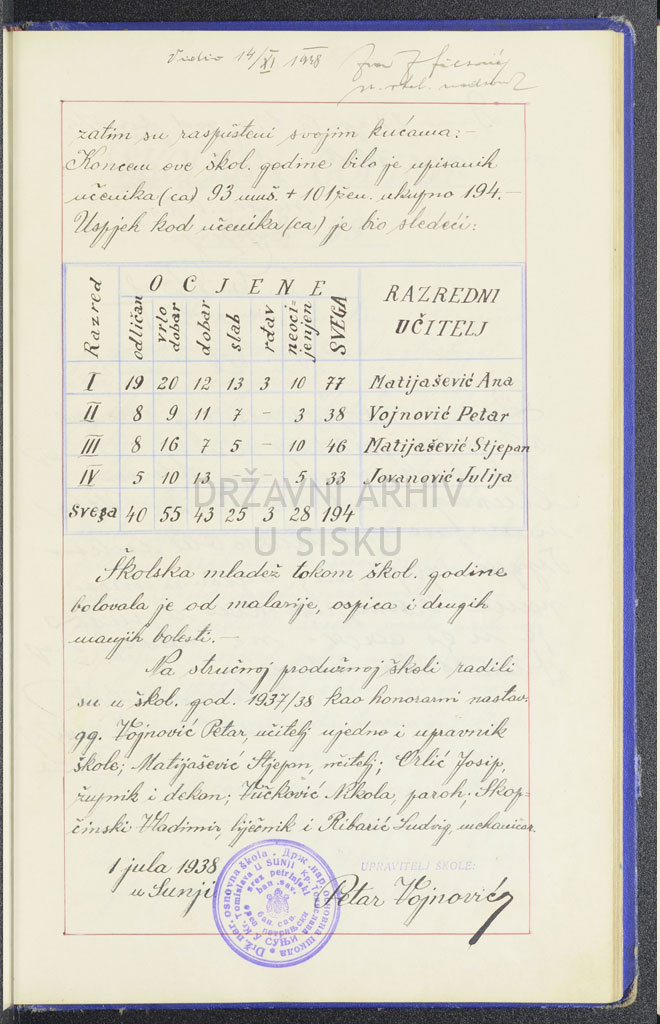 Vidio 14/XI 1938
zatim su raspušteni svojim kućama:-
Koncem ove škol. godine bilo je upisanih
učenika(ca) 93 muš. + 101 žen. ukupno 194.-
Uspjeh kod učenika(ca) je bio sledeći:
Razred OCJENE RAZREDNI UČITELJ
odličan vrlo dobar dobar slab rđav neoci-jenjen SVEGA
I 19 20 12 13 3 10 77 Matijašević Ana
II 8 9 11 7 - 3 38 Vojnović Petar
III 8 16 7 5 - 10 46 Matijašević Stjepan
IV 5 10 13 - - 5 33 Jovanović Julija
Svega 40 55 43 25 3 28 194
DRŽAVNI ARHIV
U SISKU
Školska mladež tokom škol. godine
bolovala je od malarije, ospica i drugih
manjih bolesti.-
Na stručnoj produžnoj školi radili
su u škol. god. 1937/38 kao honorarni nastav.
gg. Vojnović Petar, učitelj ujedno i upravnik
škole; Matijašević Stjepan, učitelj; Orlić Josip,
župnik i dekan; Vučković Nikola, paroh; Skop-
činski Vladimir, liječnik i Ribarić Ludvig, mehaničar.
1 jula 1938
u Sunji
UPRAVITELJ ŠKOLE:
Petar Vojnović
Drž. nar. osnovna škola · Држ. нар. основна школа
Kr. Tomislava u SUNJI Кр. Томислава у СУЊИ
srez petrinjski
ban. sav.
бан. сав.
срез петрињски